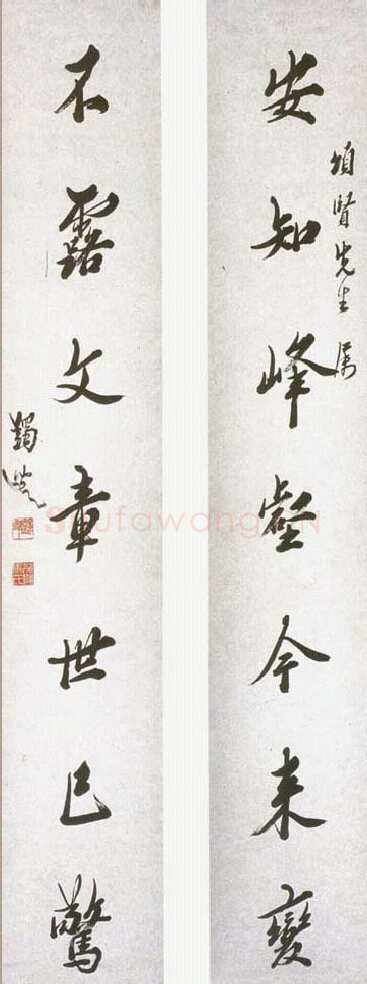 賢先生属
安知峰壑今来變
不露文章世已驚
蠲叟
Shufawang.CN